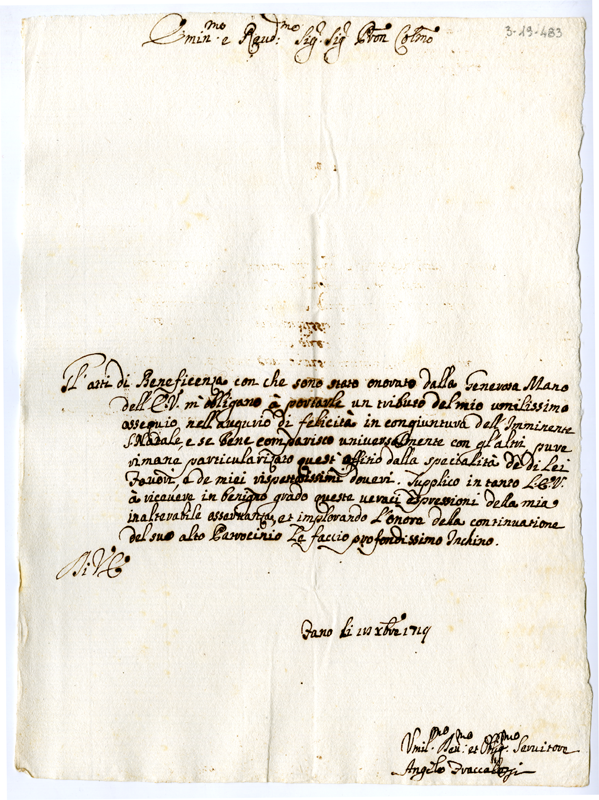 3-19-483
Emin.mo e Reud.mo Sig.r Sig.r Pron Colmo
Gl'atti di Beneficenza con che sono stato onorato dalla Generosa Mano
dell'E.V. m'obligano à portarle un tributo del mio umilissimo
ossequio nell'augurio di felicità in congiuntura dell'Imminente
S. Natale, e se bene comparisco universalmente con gl'altri pure
rimane particolarizato quest'offitio dalla specialità de di Lei
Favori, e de miei rispettosissimi doveri. Supplico in tanto L'E.V.
à ricevere in benigno grado queste veraci espressioni della mia
inalterabile osservanza, et implorando l'onore della continuatione
del suo alto Patrocinio Le faccio profondissimo Inchino.
Di V.E.
Fano li xbre 1719
Umil.mo Deu.mo et Obg.mo Seruitore
Angelo